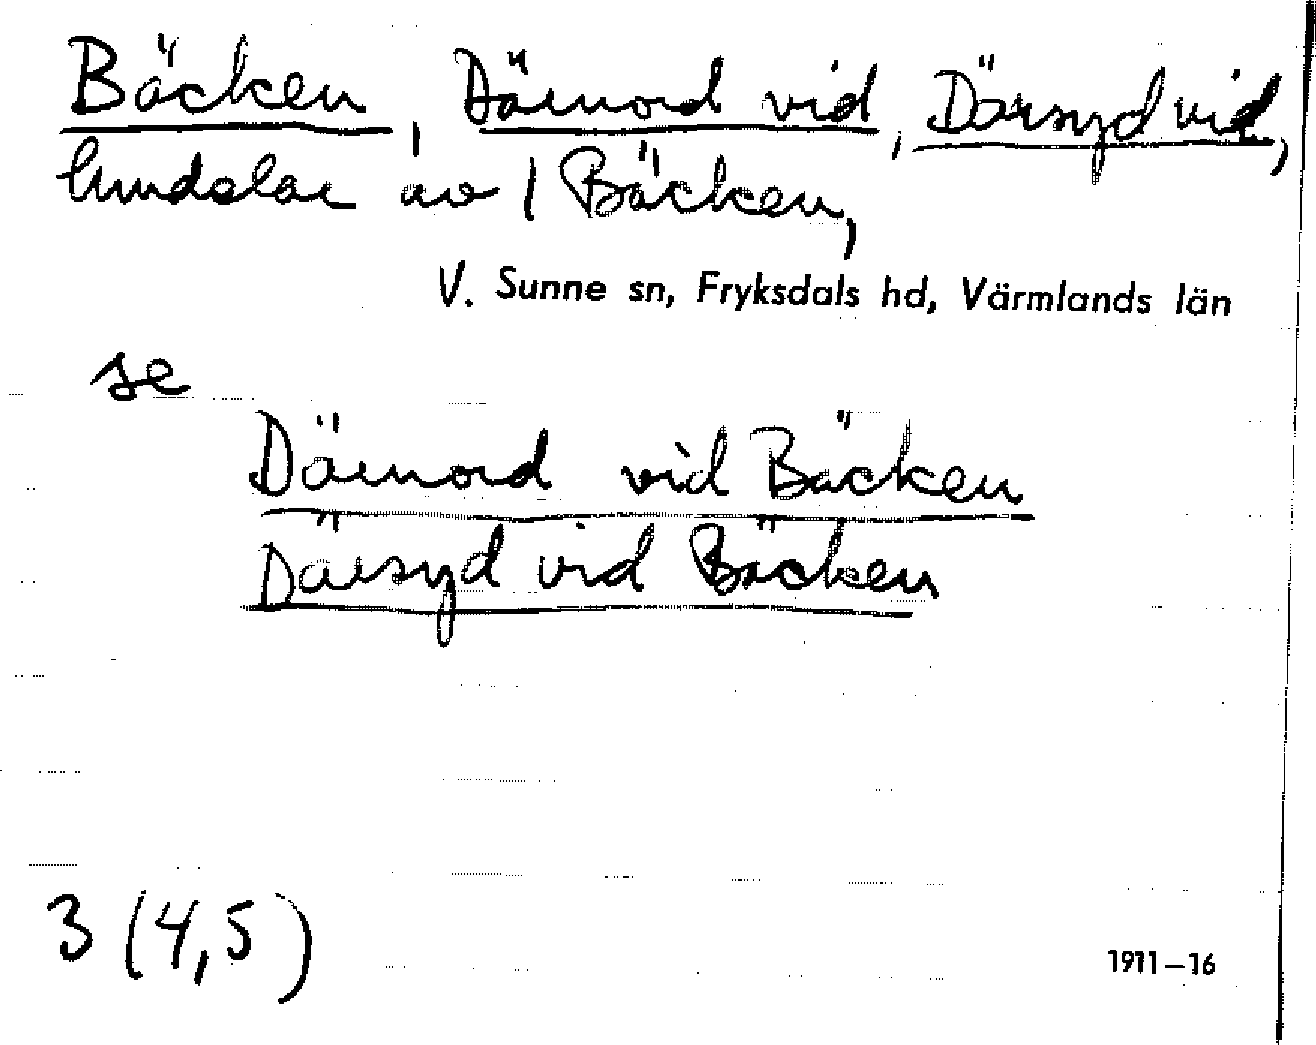 Bäcken, Därnord vid, Därsyd vid,
lunddelar av 1 Bäcken,
V. Sunne sn, Fryksdals hd, Värmlands län
se
Därnord vid Bäcken
Därsyd vid Bäcken
3 (4,5)
1911-16